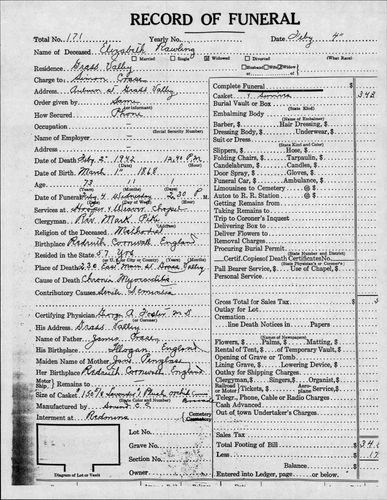 RECORD OF FUNERAL
Total No. 171 Yearly No. Date Feby 4"
Name of Deceased Elizabeth Rawling
Married Single Widowed Divorced (What Race)
Residence Grass Valley
Husband Wife Widow
Charge to Simon
Address Auburn St Grass Valley
Order given by Same
(or informant)
How Secured Phone
Occupation
(Social Security Number)
Name of Employer —
Address —
Date of Death Feby 2" 1942 12.40 P.M
Date of Birth March 1" 1868
Age 73 11 1
Date of Funeral Feby 4 Wednesday 2.30 P.M.
Services at Hooper & Weaver Chapel
Clergyman Rev. Mark
Religion of the Deceased Methodist
Birthplace Redruth Cornwall England
Resided in the State 57 Yrs
Place of Death 230 East Main St Grass Valley
Cause of Death Chronic Myocarditis
Contributory Causes Senile
Certifying Physician Geo. A. Foster M.D
(or Coroner)
His Address Grass Valley
Name of Father James
His Birthplace Illogan England
Maiden Name of Mother Jane Penglase
Her Birthplace Redruth Cornwall England
Motor Ship Remains —
Size of Casket
Manufactured by
Interment at Cemetery
Lot No.
Grave No.
Section No.
Owner
Diagram of Lot or Vault
Complete Funeral $
Casket 343
Burial Vault or Box
(State Kind)
Embalming Body
(Name of Embalmer)
Barber, $ Hair Dressing, $
Dressing Body, $ Underwear, $
Suit or Dress
(State Kind and Color)
Slippers, $ Hose, $
Folding Chairs, $ Tarpaulin, $
Candelabrum, $ Candles, $
Door Spray, $ Gloves, $
Funeral Car, $ Ambulance, $
Limousines to Cemetery @ $
Autos to R. R. Station @ $
Getting Remains from
Taking Remains to
Trip to Coroner's Inquest
Delivering Box to
Deliver Flowers to
Removal Charges
Procuring Burial Permit
(State Number and District)
Certif. Copies of Death Certificates No.
(State Physician's or Coroner's)
Pall Bearer Service, $ Use of Chapel, $
Personal Service
Gross Total for Sales Tax $
Outlay for Lot
Cremation
line Death Notices in Papers
Flowers, $ Palms, $ Matting, $
Rental of Tent, $ of Temporary Vault, $
Opening of Grave or Tomb
Lining Grave, $ Lowering Device, $
Outlay for Shipping Charges
Clergyman, $ Singers, $ Organist, $
Tickets, $ Aero Service, $
Telegr., Phone, Cable or Radio Charges
Cash Advanced
Out of town Undertaker's Charges
Sales Tax
Total Footing of Bill $
Less
Balance $
Entered into Ledger, page or below.